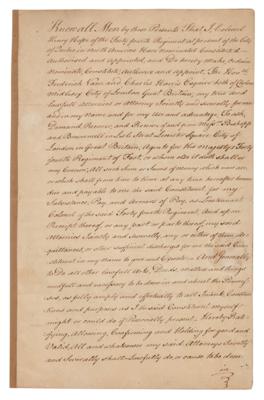 Know all Men by these Presents That I Colonel
Henry Hope of the Forty fourth Regiment at present of the City
of Quebec in North America Have nominated Constituted
Authorised and appointed, And Do hereby Make, Ordain
nominate, Constitute, Authorise and appoint The Honble
Frederick Cane and Charles Harris Esquire both of
Middlesex City of London Great Britain, my true and
lawfull Attornies or Attorney Jointly and severally for me
and in my name and for my Use and advantage To ask,
Demand, Recover, and Receive of and from Messrs Bishopp
and Brummell in Lisle Street Leicester Square City of
London in Great Britain, Agents for his Majesty's Forty
fourth Regiment of Foot, or whom else it doth shall or
may Concern, All such Sum or Sums of money which now are
or which shall from time to time at any time hereafter become
due and payable to me the said Constituent for my
Subsistence, Pay, and Arrears of Pay, as Lieutenant
Colonel of the said Forty fourth Regiment And upon
Receipt thereof, or any part or parts thereof my said
Attornies Jointly and severally, any or either of them, Ac-
quittances, or other sufficient discharges for me the said Con-
stituent in my name to give and Execute And Generally
to Do all other lawfull Acts, Deeds, matters and things
needfull and necessary to be done in and about the Premi-
ses, as fully amply and effectually to all Intents Construc-
tions and purposes as I the said Constituent myself
might or could do if Personally present. Hereby Rati-
fying, Allowing, Confirming and Holding for good and
Valid, All and whatsoever my said Attornies Jointly
and Severally shall lawfully do or cause to be done
in